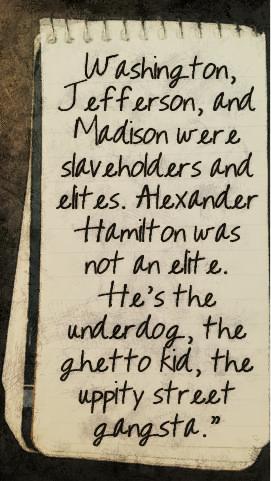 Washington,
Jefferson, and
Madison were
slaveholders and
elites. Alexander
Hamilton was
not an elite.
He's the
underdog, the
ghetto kid, the
uppity street
gangsta."